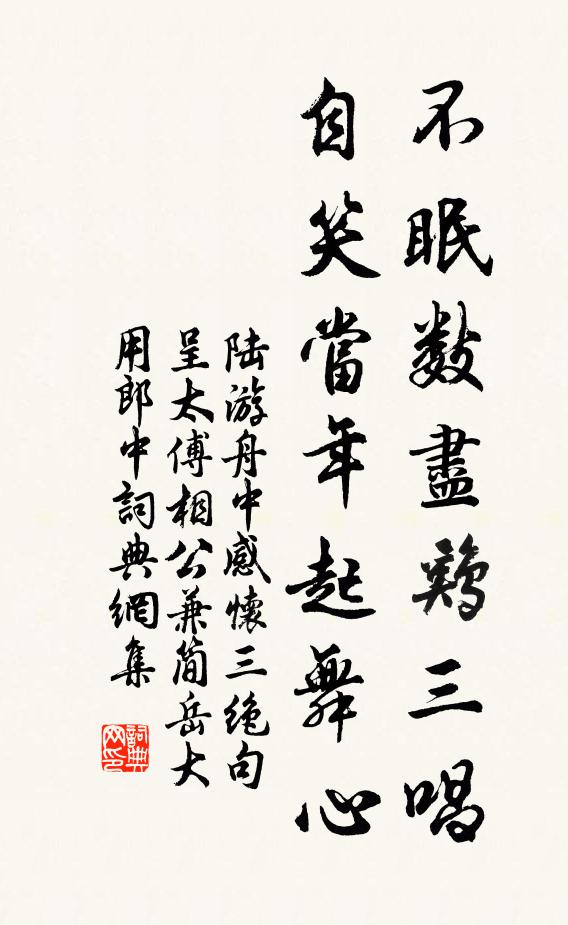 不眠數盡鷄三唱
自笑當年起舞心
陆游舟中感懷三绝句
呈太傅相公兼简岳大
用郎中詞典網集
詞典
网印